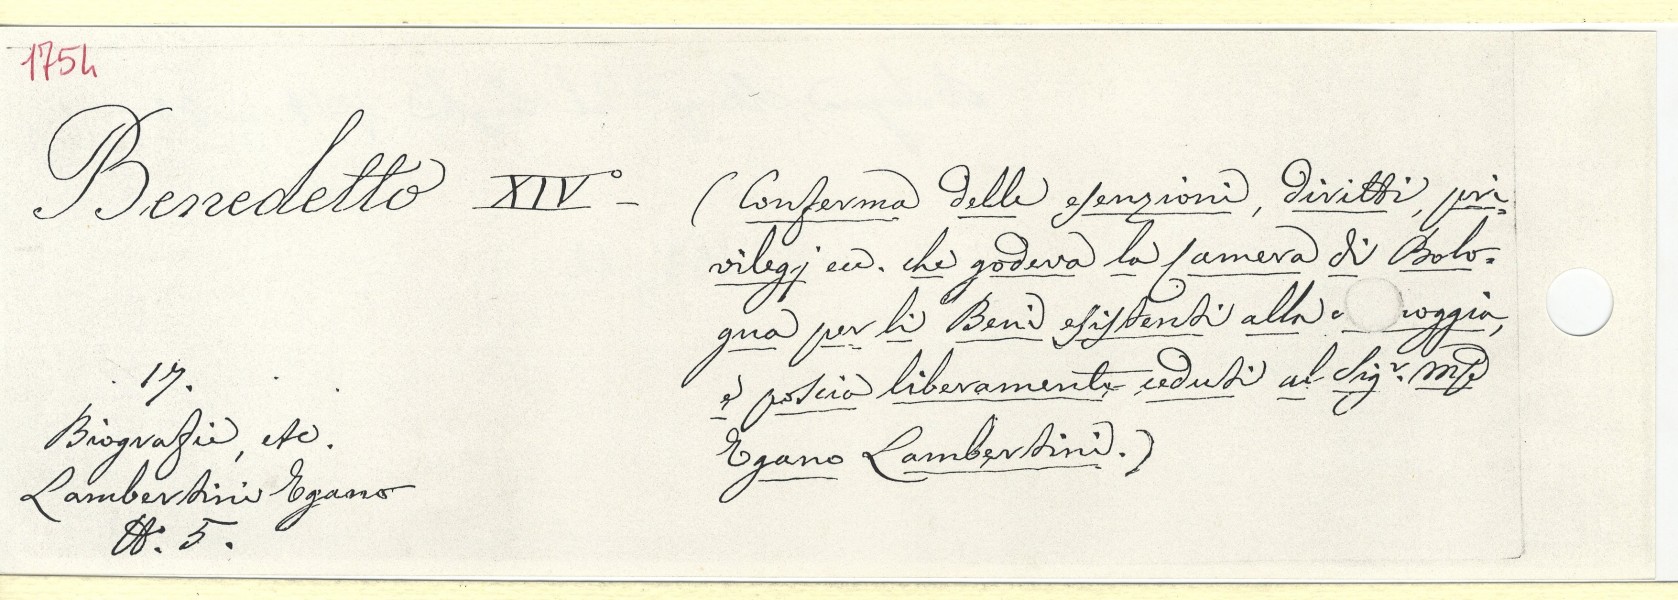 1754
Benedetto XIV° –
(Conferma delle esenzioni, diritti, pri=
vilegj ecc. che godeva la Camera di Bolo=
gna per li Beni esistenti alla
e poscia liberamente ceduti al Sigr. Mse
Egano Lambertini.)
17.
Biografie, etc.
Lambertini Egano
N. 5.